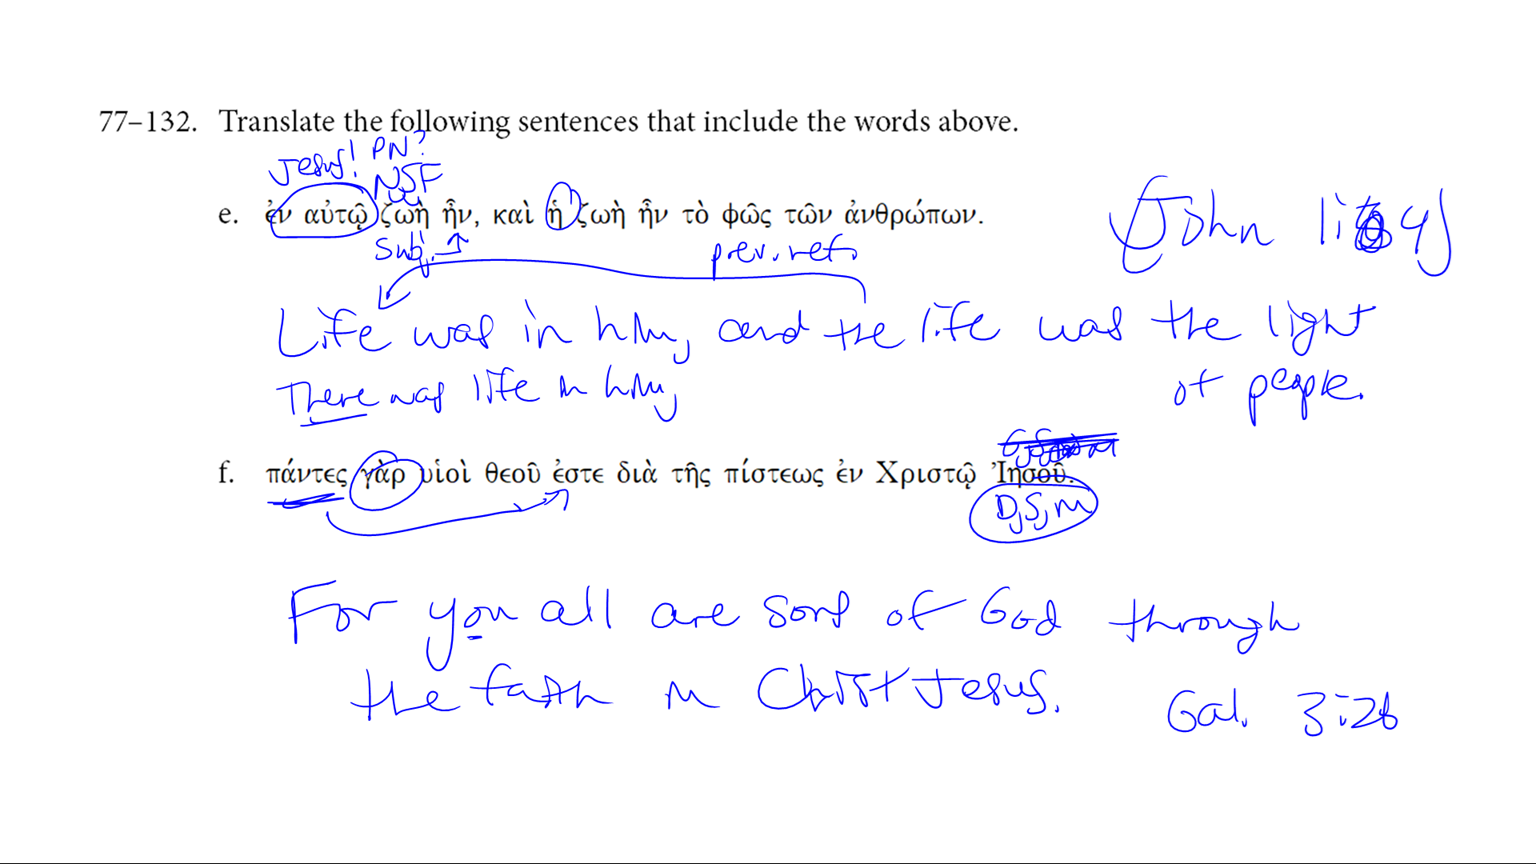 77–132. Translate the following sentences that include the words above.
Jesus! PN?
NSF
e. ἐν αὐτῷ ζωὴ ἦν, καὶ ἡ ζωὴ ἦν τὸ φῶς τῶν ἀνθρώπων.
(John 1:4)
Subj. prev. ref.
Life was in him, and the life was the light
There was life in him, of people.
f. πάντες γὰρ υἱοὶ θεοῦ ἐστε διὰ τῆς πίστεως ἐν Χριστῷ Ἰησοῦ.
D,S,M
For you all are sons of God through
the faith in Christ Jesus. Gal. 3:26